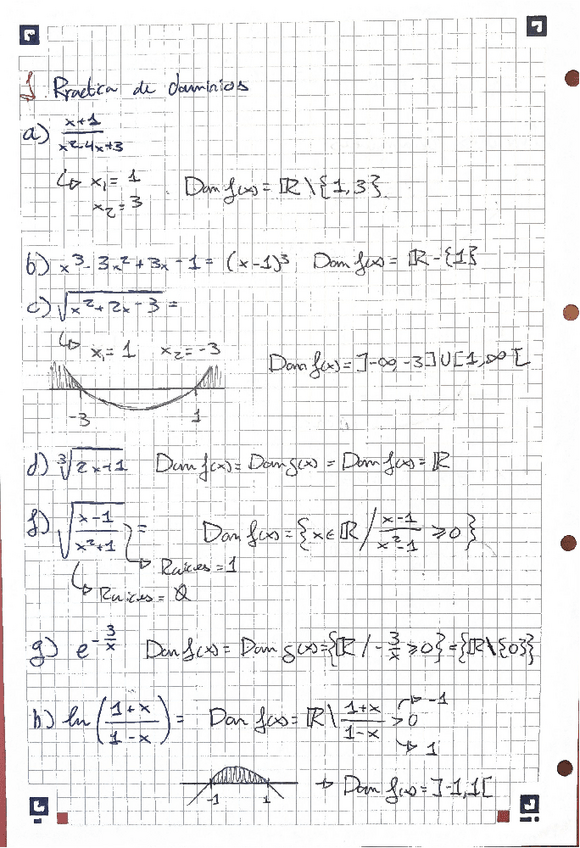 1. Practica de dominios
a) x+1 / x²-4x+3
↳ x₁= 1
x₂= 3
Dom f(x) = ℝ \ {1,3}
b) x³- 3x²+3x-1= (x-1)³ Dom f(x) = ℝ-{1}
c) √(x²+2x-3) =
↳ x₁= 1 x₂= -3
Dom f(x) = ]-∞,-3]∪[1,∞[
-3 1
d) ³√(2x+1) Dom f(x) = Dom g(x) = Dom f(x) = ℝ
f) √((x-1)/(x²+1)) = Dom f(x) = {x∈ℝ / (x-1)/(x²-1) ≥0}
↳ Raices = 1
↳ Raices = ∅
g) e^(-3/x) Dom f(x) = Dom g(x)={ℝ / -3/x ≥0} = {ℝ\{0}}
h) ln((1+x)/(1-x)) = Dom f(x) = ℝ \ (1+x)/(1-x) > 0
→ -1
→ 1
-1 1
→ Dom f(x) = ]-1,1[